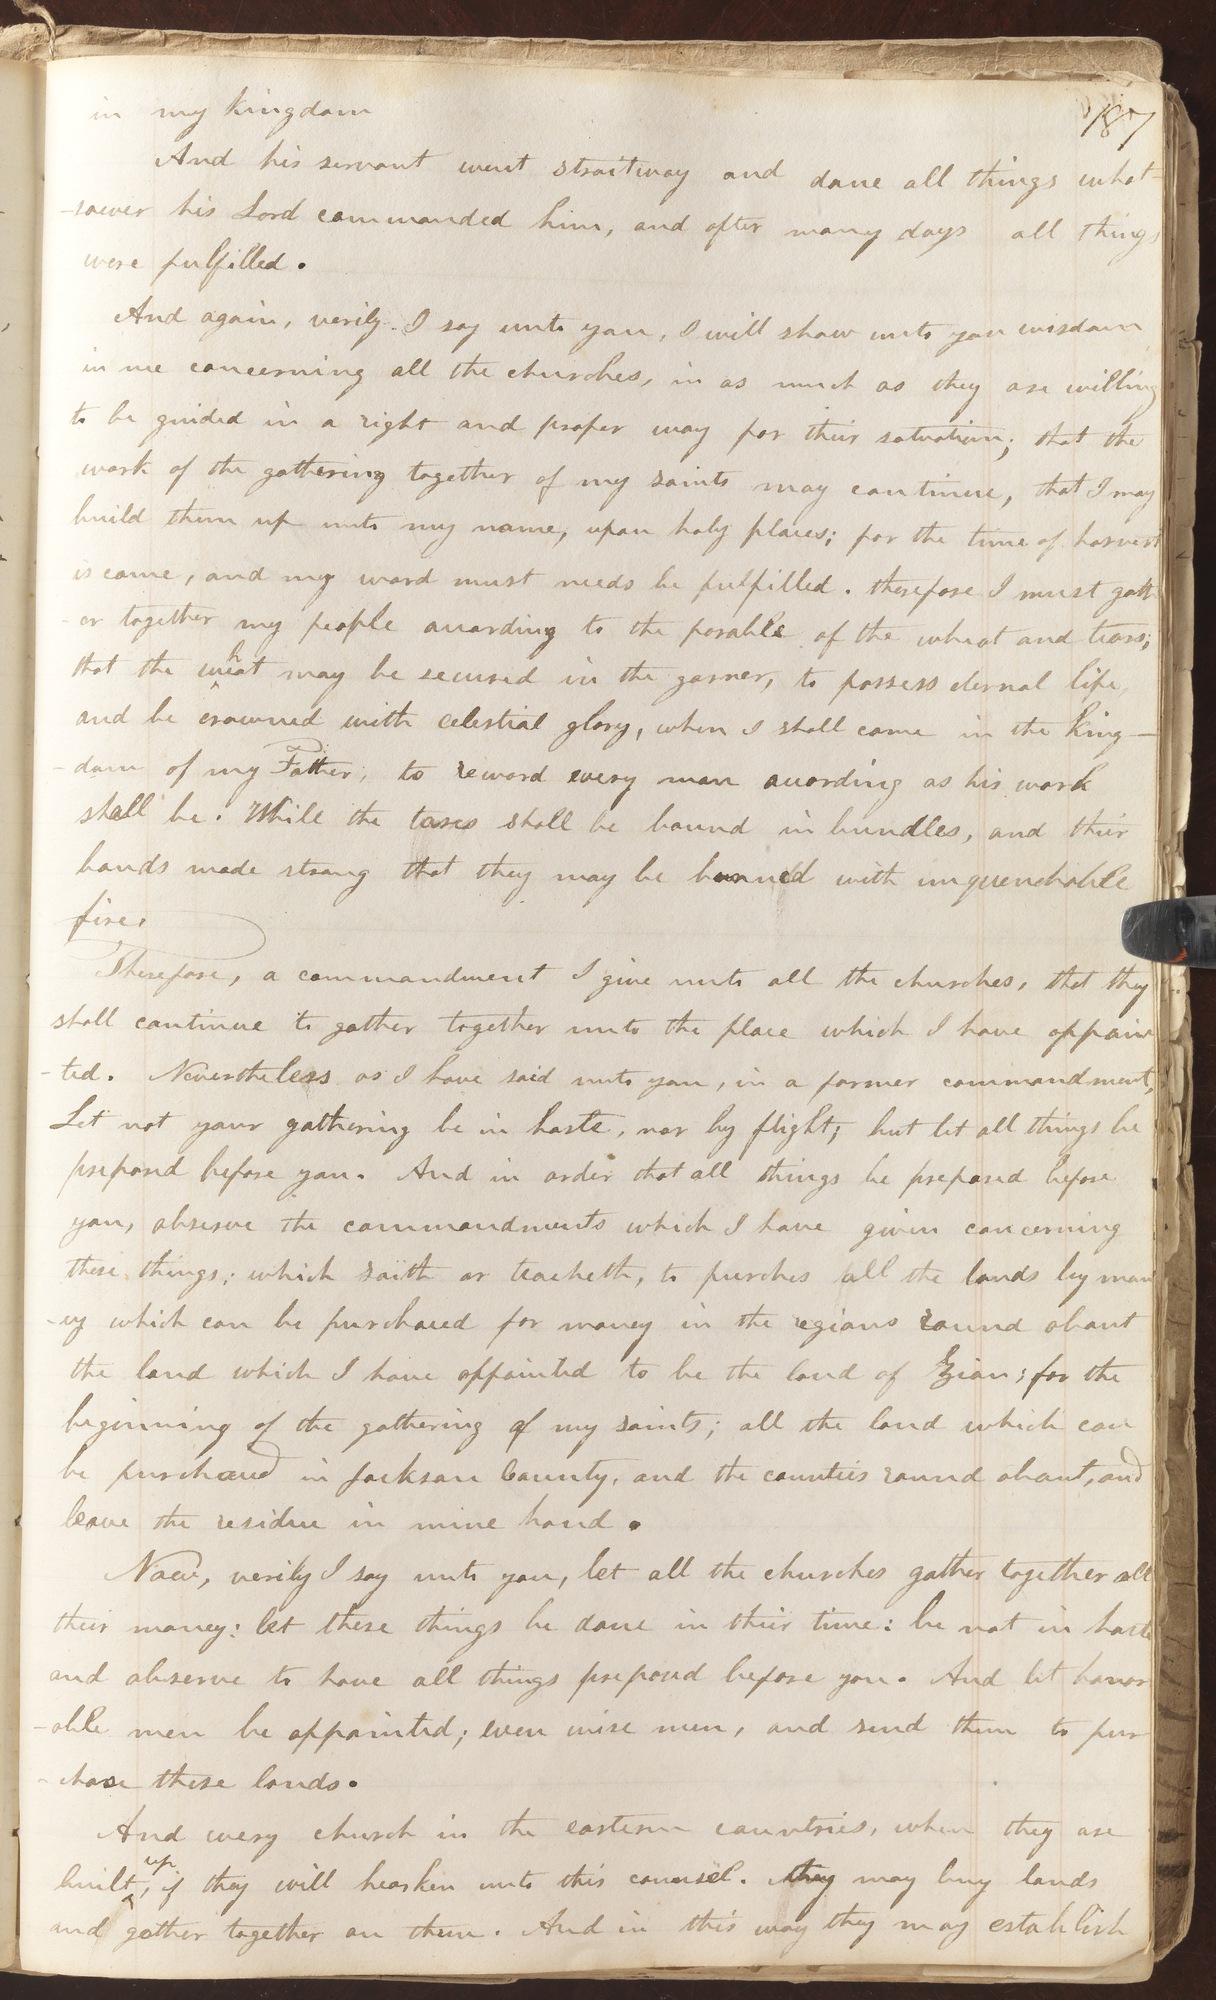 187
in my kingdom
And his servant went straitway and done all things what-
-soever his Lord commanded him, and after many days all things
were fulfilled.
And again, verily I say unto you, I will show unto you wisdom
in me concerning all the churches, in as much as they are willing
to be guided in a right and proper way for their salvation; that the
work of the gathering together of my saints may continue, that I may
build them up unto my name, upon holy places; for the time of harvest
is come, and my word must needs be fulfilled. therefore I must gath
-er together my people according to the parable of the wheat and tears;
that the wheat may be secured in the garner, to possess eternal life,
and be crowned with celestial glory, when I shall come in the King-
-dom of my Father, to reward every man according as his work
shall be. While the tares shall be bound in bundles, and their
bands made strong that they may be burned with unquenchable
fire.
Therefore, a commandment I give unto all the churches, that they
shall continue to gather together unto the place which I have appoin
-ted. Nevertheless as I have said unto you, in a former commandment,
Let not your gathering be in haste, nor by flight; but let all things be
prepared before you. And in order that all things be prepared before
you, observe the commandments which I have given concerning
these things; which saith or teacheth, to purches all the lands by mon
-ey which can be purchased for money in the regions round about
the land which I have appointed to be the land of Zion; for the
beginning of the gathering of my saints; all the land which can
be purchased in Jackson County, and the counties round about, and
leave the residue in mine hand.
Now, verily I say unto you, let all the churches gather together all
their money: let these things be done in their time: be not in haste
and observe to have all things prepared before you. And let honor
-able men be appointed; even wise men, and send them to pur
-chase these lands.
And every church in the eastern countries, when they are
built up, if they will hearken unto this counsel. they may buy lands
and gather together on them. And in this way they may establish